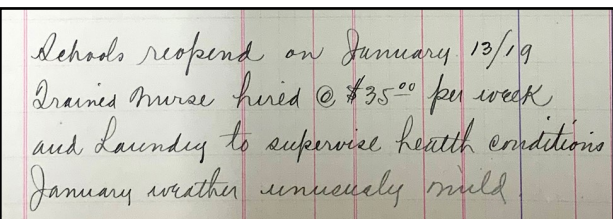 Schools reopend on January 13/19
Trained Nurse hired @ $35.00 per week
and Laundry to supervise health conditions
January weather unusualy mild.